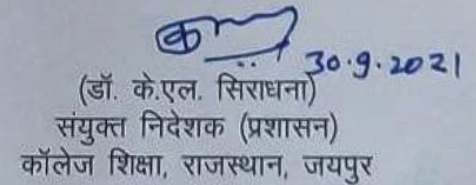 30.9.2021
(डॉ. के.एल. सिराधना)
संयुक्त निदेशक (प्रशासन)
कॉलेज शिक्षा, राजस्थान, जयपुर